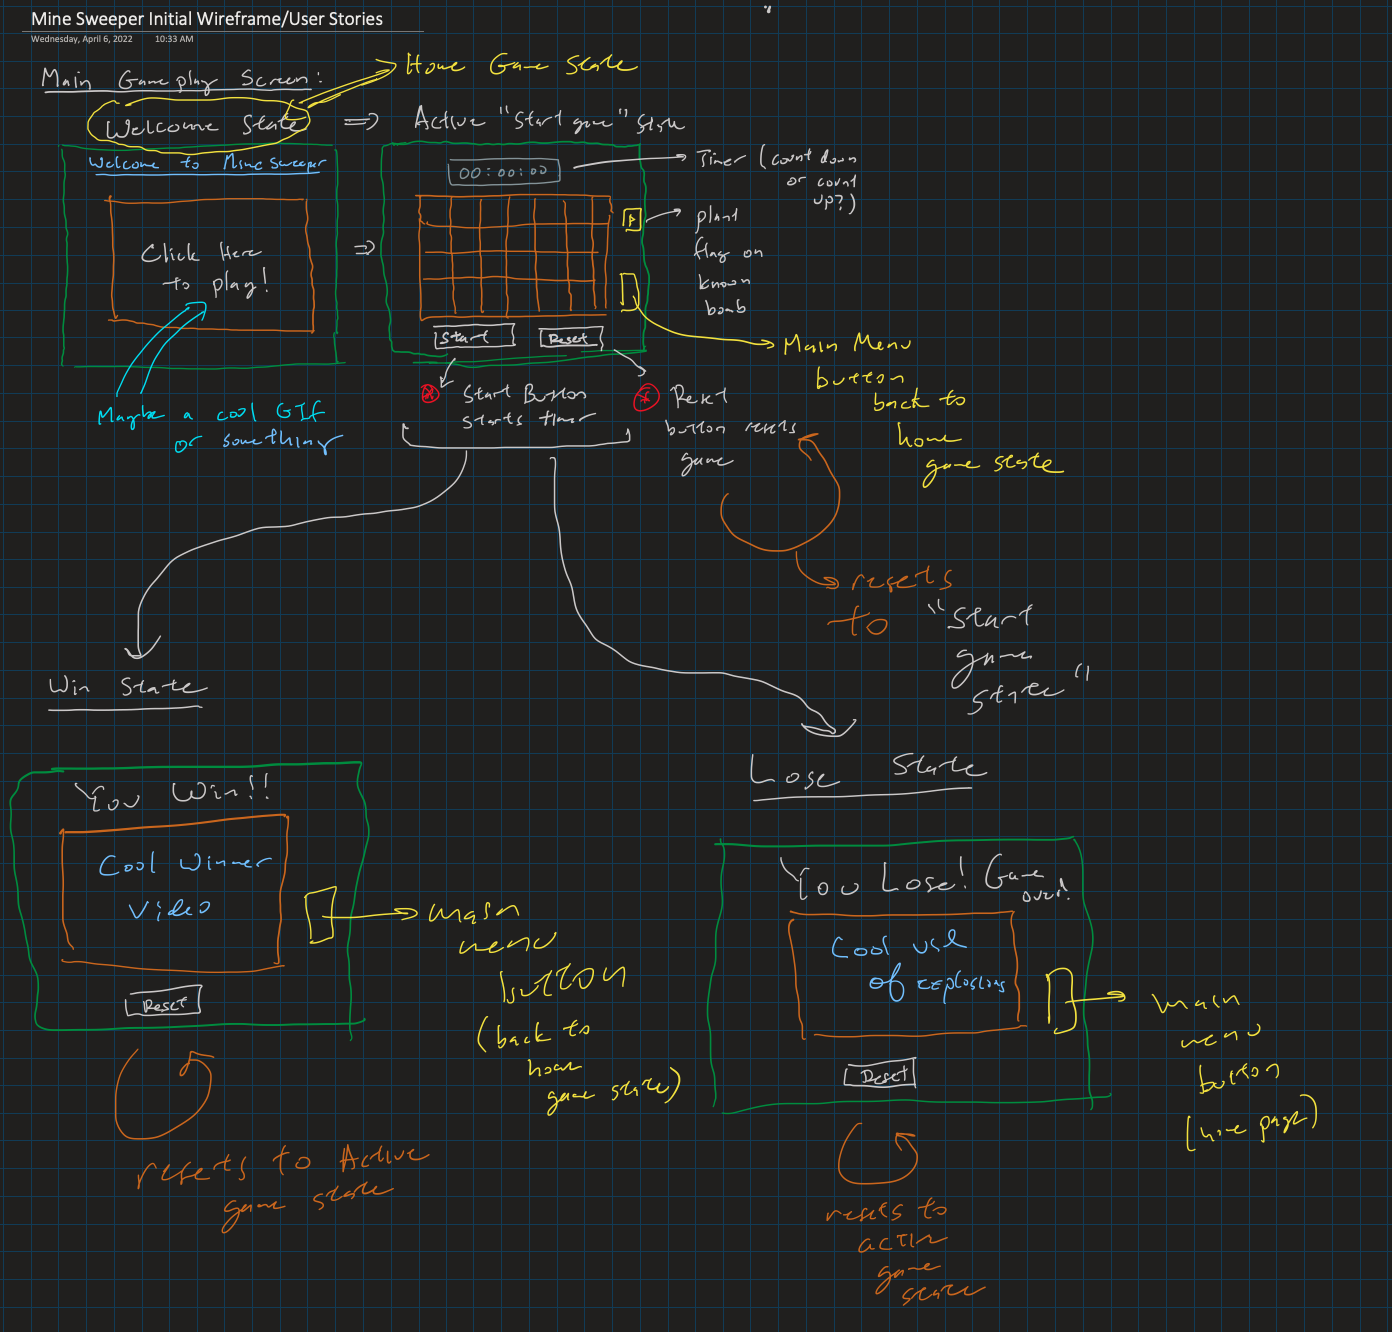 Mine Sweeper Initial Wireframe/User Stories
Wednesday, April 6, 2022 10:33 AM
Main Gameplay Screen:
Home Game State
Welcome State => Active "Start game" State
Welcome to Mine Sweeper
Click Here
to play!
Maybe a cool GIF
or something
=>
00:00:00
Timer (count down
or count
up?)
plant
flag on
known
bomb
Start
Reset
Main Menu
button
back to
home
game state
Start Button
starts timer
Reset
button resets
game
resets
to "Start
game
state"
Win State
You Win!!
Cool Winner
Video
Reset
main
menu
button
(back to
home
game state)
resets to Active
game state
Lose State
You Lose! Game
over!
Cool use
of explosions
Reset
main
menu
button
(home page)
resets to
active
game
state